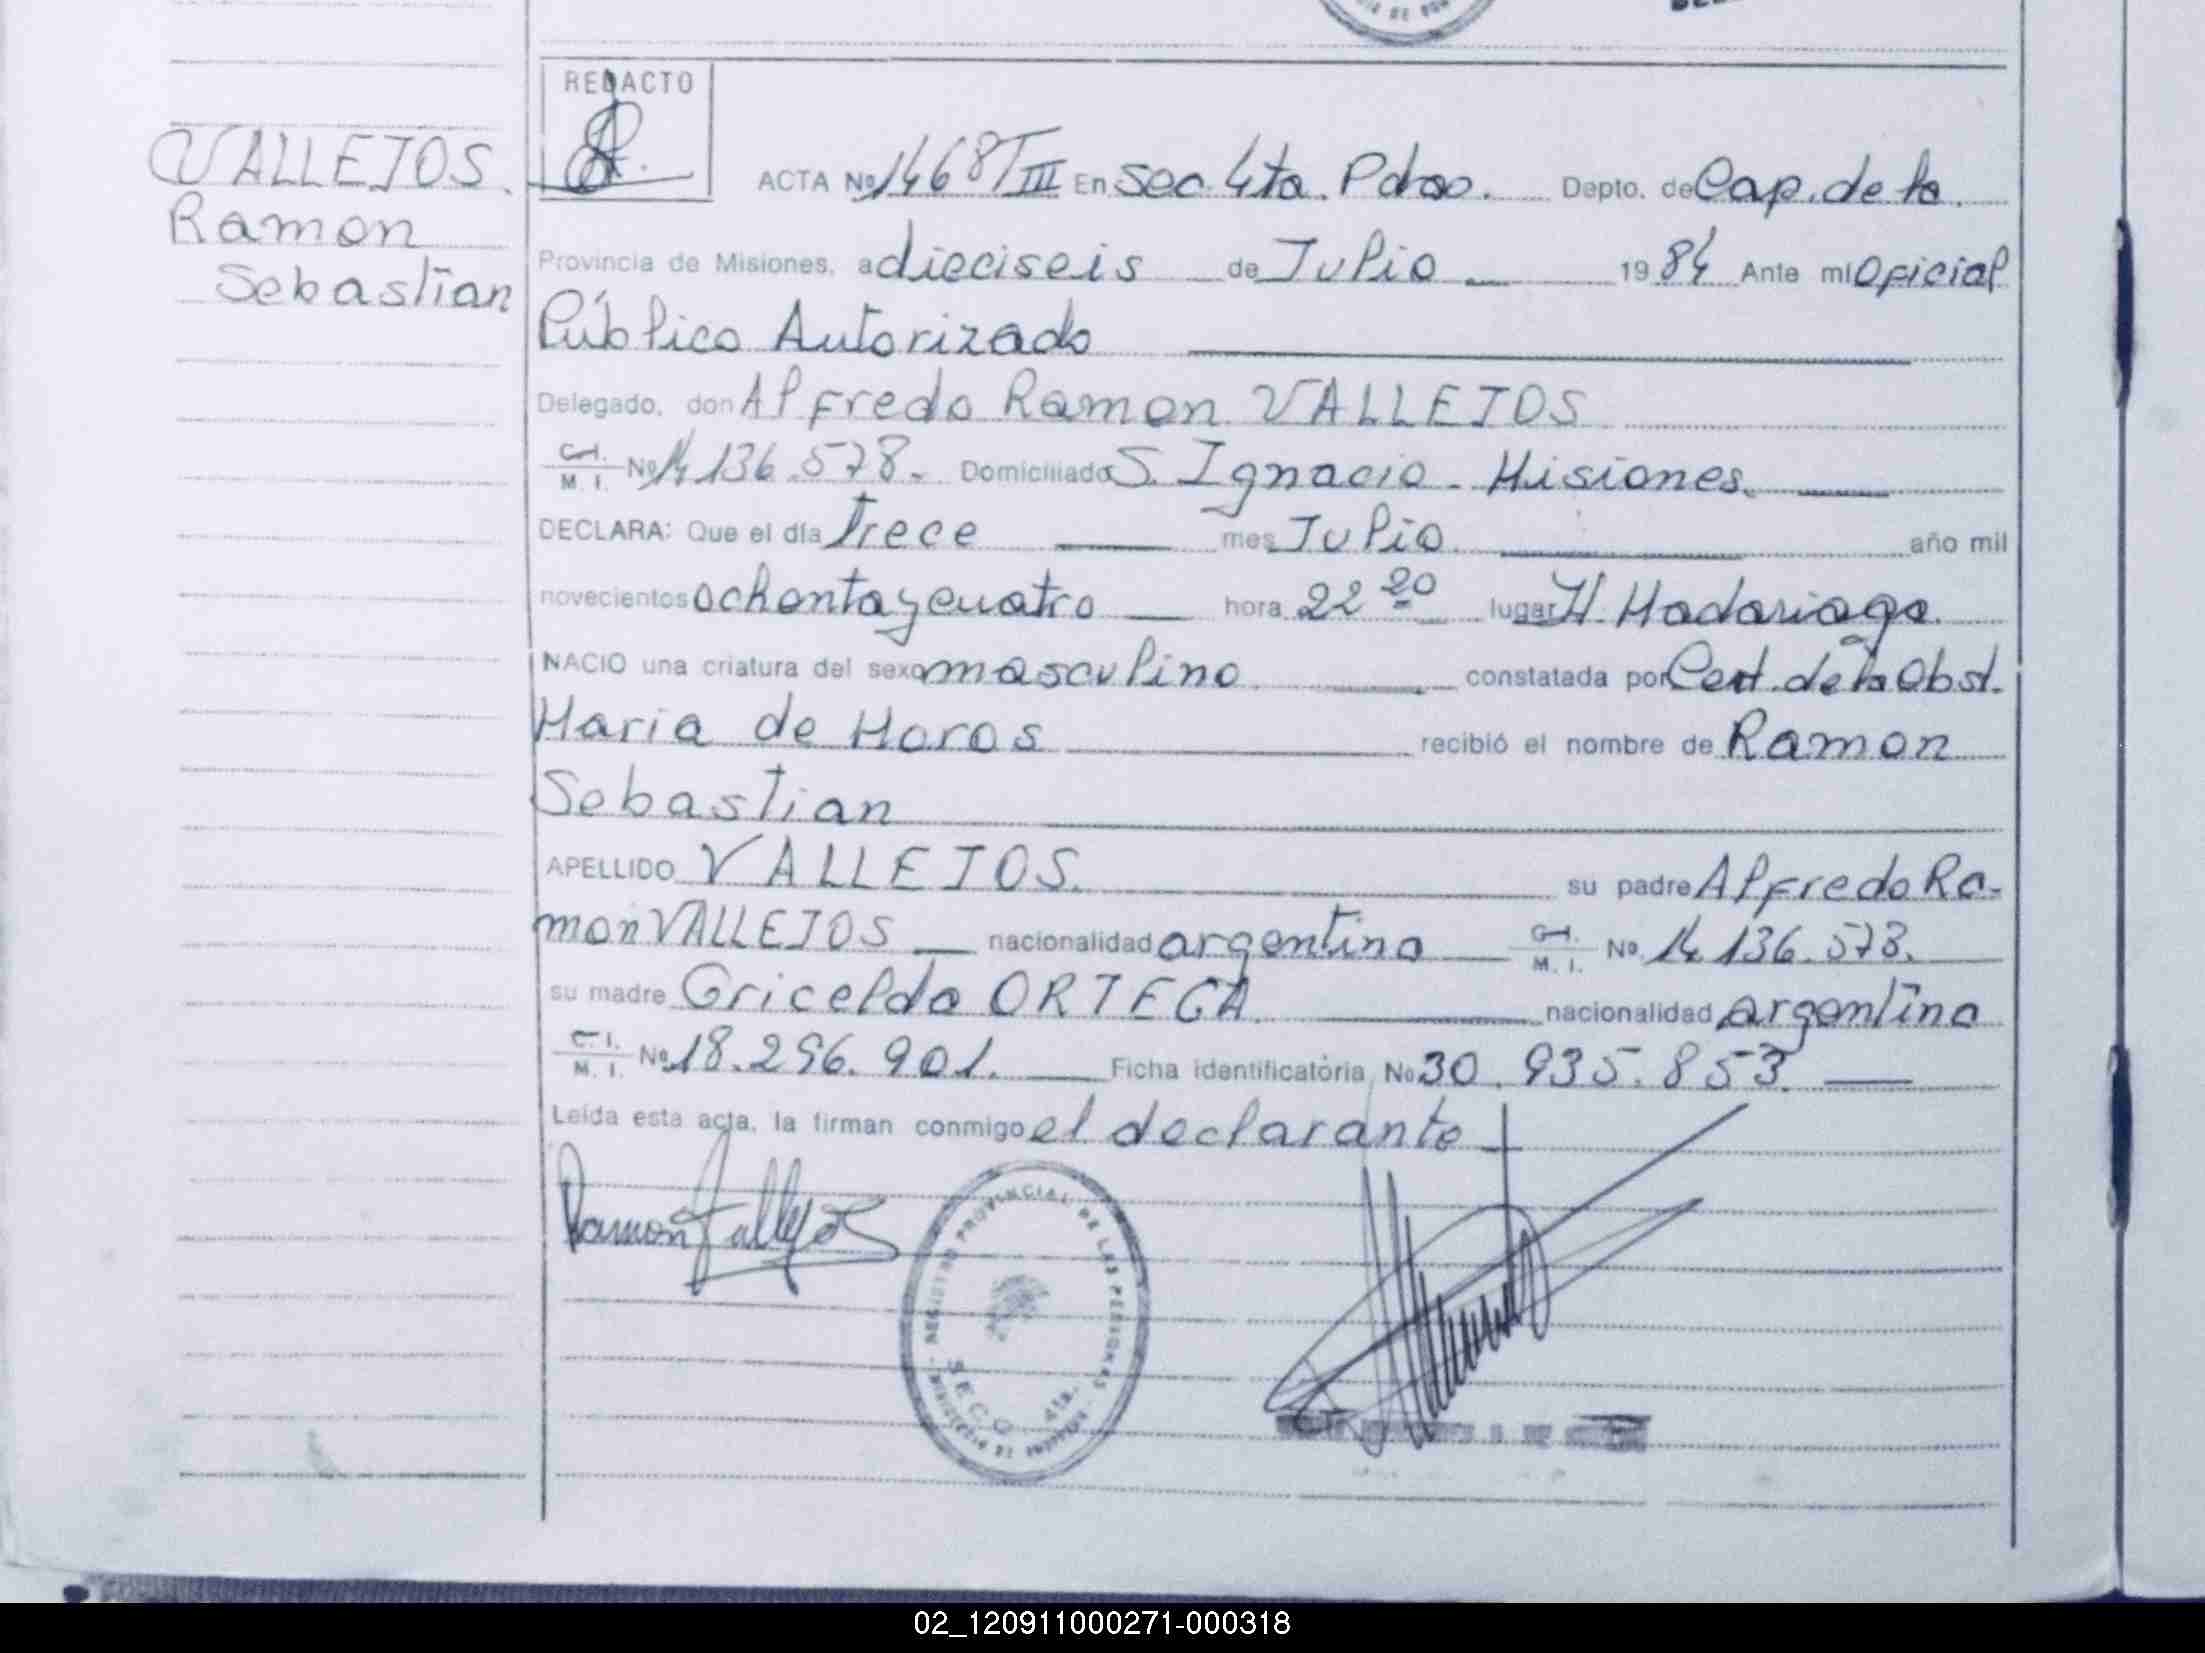 REDACTO
VALLEJOS.
Ramon
Sebastian
ACTA Nº 1468 T III En Sec. 4ta. Pdas. Depto. de Cap. de la
Provincia de Misiones, a dieciseis de Julio 1984 Ante mí Oficial
Público Autorizado
Delegado, don Alfredo Ramon VALLEJOS
C.I. M.I. Nº 14.136.578. Domiciliado S. Ignacio - Misiones.
DECLARA: Que el día trece mes Julio. año mil
novecientos ochenta y cuatro hora 22 20 lugar H. Madariaga.
NACIO una criatura del sexo masculino constatada por Cert. de la Obst.
Maria de Moros recibió el nombre de Ramon
Sebastian
APELLIDO VALLEJOS. su padre Alfredo Ra-
mon VALLEJOS nacionalidad argentina C.I. M.I. Nº 14.136.578.
su madre Gricelda ORTEGA nacionalidad argentina
C.I. M.I. Nº 18.296.901. Ficha identificatória, Nº 30.935.853
Leída esta acta, la firman conmigo el declarante
Ramon Vallejos
REGISTRO PROVINCIAL DE LAS PERSONAS
SECC. 4ta.
02_120911000271-000318